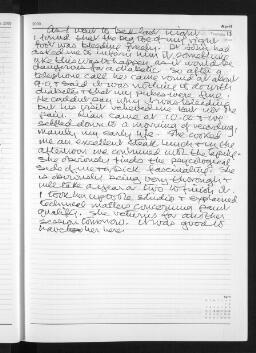 2000
April
Thursday 13
As I went to bed last night
I found that the big toe of my right
foot was bleeding freely. Dr
asked me to inform him if something
like this was to happen as it would be
dangerous for a diabetic. So after a
telephone call he came round at about
9.45 & said it was nothing to do with
diabetes & that my pulses were fine.
He couldn't say why it was bleeding
but he just watched me but the
pain. came at 10.00 & we
settled down to a morning of recording,
mainly my early life. She cooked
me an excellent steak lunch & in the
afternoon we continued with the taping.
She obviously finds the psychological
side of me & fascinating. She
is obviously being very thorough &
will take a year or two to finish it.
I took her up to the studio & explained
technical matters concerning paint
quality. She returns for another
session tomorrow. It was good to
have her here.